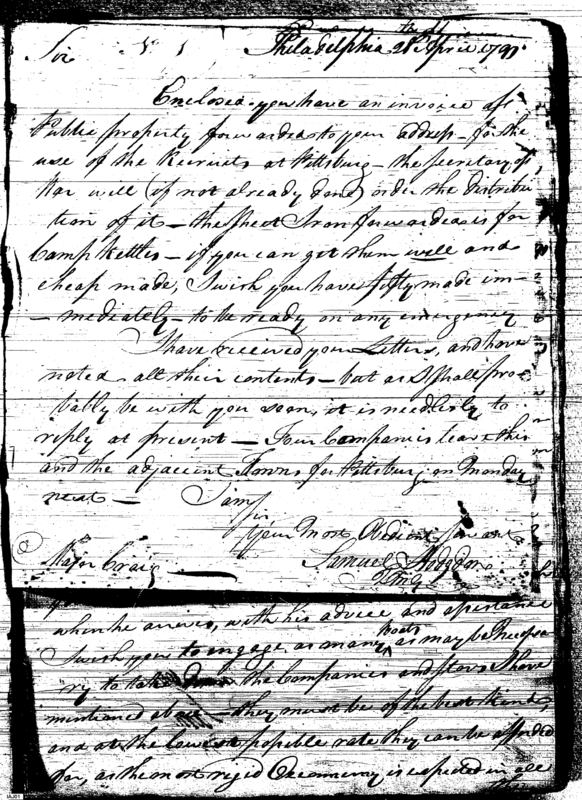 Sir No. 1 Philadelphia 28 April 1791.
Enclosed you have an invoice of
Public property forwarded to your address – for the
use of the Recruits at Pittsburg – the Secretary of
War will (if not already done) order the distribu
tion of it – the sheet Iron forwarded is for
Camp Kettles – if you can get them well and
cheap made, I wish you have fifty made im-
-mediately – to be ready on any emergency
I have received your Letters, and have
noted all their contents – but as I shall pro
bably be with you soon, it is needless to
reply at present – Four Companies leave this
and the adjacent Towns for Pittsburg on Monday
next – I am
Sir
Your Most Obedient Servant
Major Craig Samuel Hodgdon
QMG
when he arrives, with his advice and assistance
I wish you to engage as many boats as may be Necessa
ry to take the Companies and stores I have
mentioned above they must be of the best kind,
and at the lowest possible rate they can be afforded
for, as the most rigid Oeconomy is expected in all